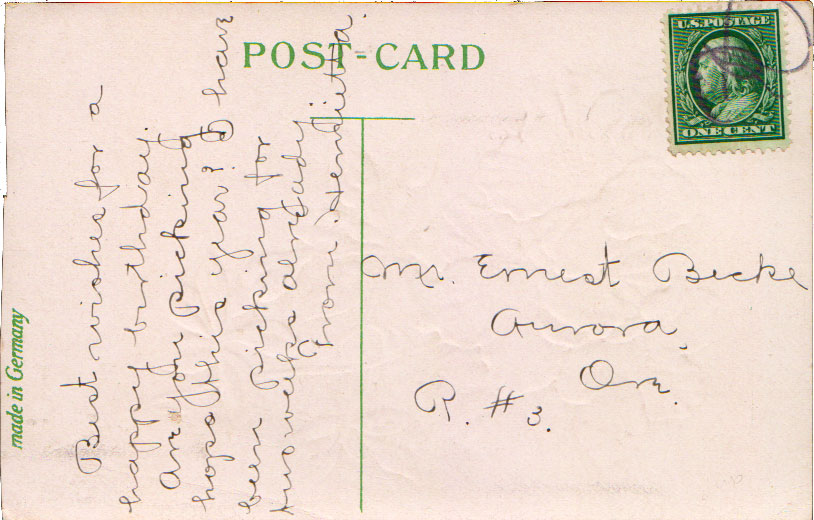 POST-CARD
U.S. POSTAGE
ONE CENT
Best wishes for a
happy birthday.
Are you picking
hops this year? I have
been picking for
two weeks already
From Henrietta.
Mr. Ernest Becke
Aurora,
Ore.
R. #3.
made in Germany